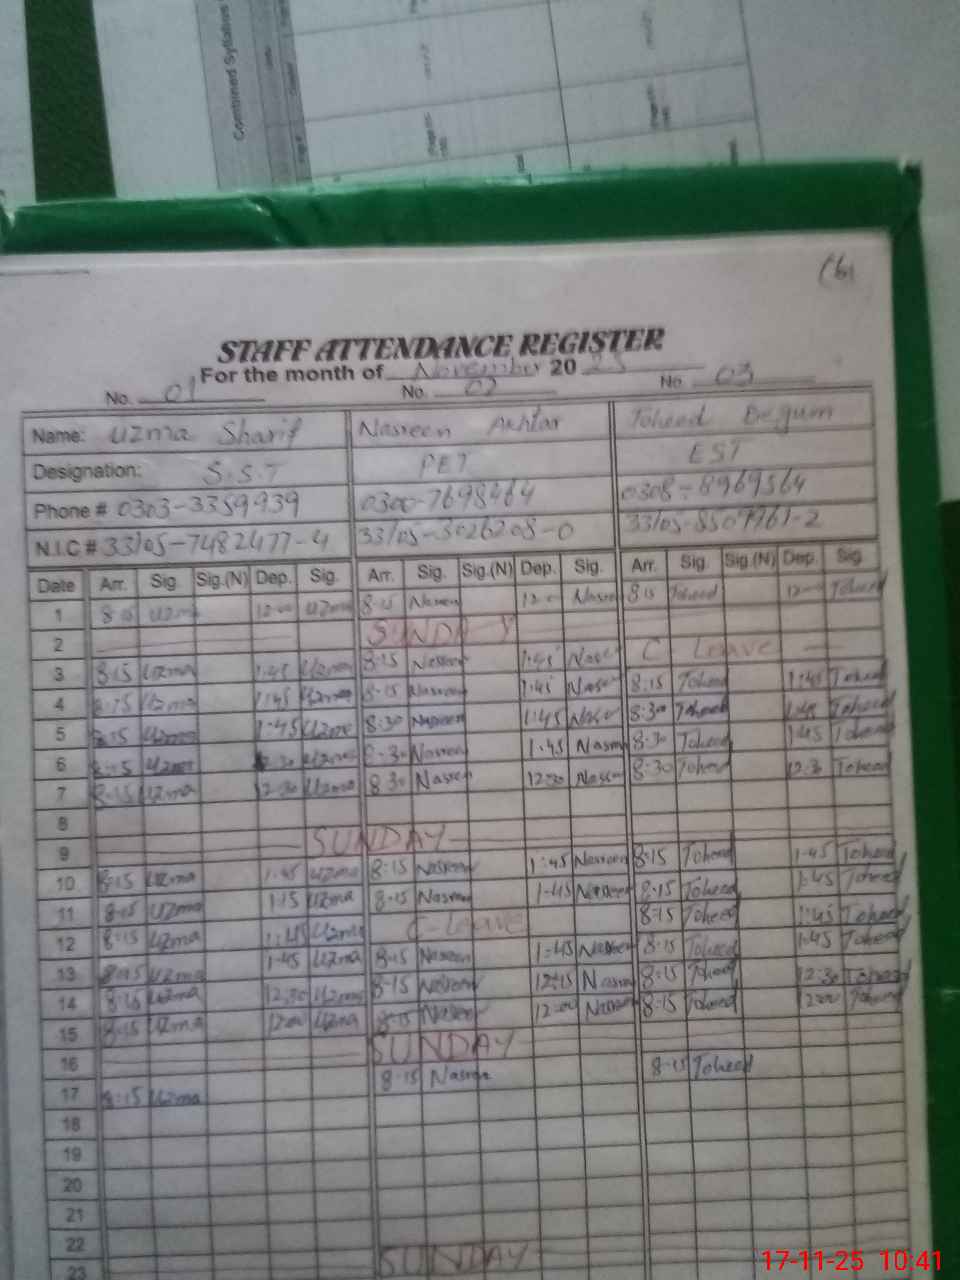 Combined Syllabus
STAFF ATTENDANCE REGISTER
For the month of November 20 25
No. 01 No. 02 No 03
Name: Uzma Sharif Nasreen Akhtar Toheed Begum
Designation: S.S.T PET EST
Phone # 0303-3359939 0300-7698464 0308-8969564
N.I.C # 33105-7482477-4 33105-3026208-0 33105-8507761-2
Date Arr. Sig. Sig.(N) Dep. Sig. Arr. Sig. Sig.(N) Dep. Sig. Arr. Sig. Sig.(N) Dep. Sig.
1 8:15 Uzma 12:00 Uzma 8:15 Nasreen 12:00 Nasreen 8:15 Toheed 12:00 Toheed
2 SUNDAY
3 8:15 Uzma 1:45 Uzma 8:15 Nasreen 1:45 C. Leave
4 Uzma 1:45 Uzma 8:15 Nasreen 1:45 8:15 Toheed 1:45 Toheed
5 8:15 Uzma 1:45 Uzma 8:30 Nasreen 1:45 8:30 Toheed 1:45 Toheed
6 8:15 Uzma Uzma 8:30 Nasreen 1:45 8:30 Toheed 1:45 Toheed
7 8:15 Uzma 12:30 Uzma 8:30 Nasreen 12:30 8:30 Toheed 12:30 Toheed
8
9 SUNDAY
10 8:15 Uzma 1:45 Uzma 8:15 Nasreen 1:45 Nasreen 8:15 Toheed 1:45 Toheed
11 8:15 Uzma 1:15 Uzma 8:15 Nasreen 1:45 Nasreen 8:15 Toheed 1:45 Toheed
12 8:15 Uzma 1:45 Uzma C-Leave 8:15 Toheed 1:45 Toheed
13 8:15 Uzma 1:45 Uzma 8:15 Nasreen 1:45 Nasreen 8:15 Toheed 1:45 Toheed
14 8:15 Uzma 12:30 Uzma 8:15 Nasreen Nasreen 8:15 Toheed 12:30 Toheed
15 8:15 Uzma 12:00 Uzma 8:15 Nasreen 12:00 Nasreen 8:15 Toheed 12:00 Toheed
16 SUNDAY
17 8:15 Uzma 8:15 Nasreen 8:15 Toheed
18
19
20
21
22
23 SUNDAY
17-11-25 10:41